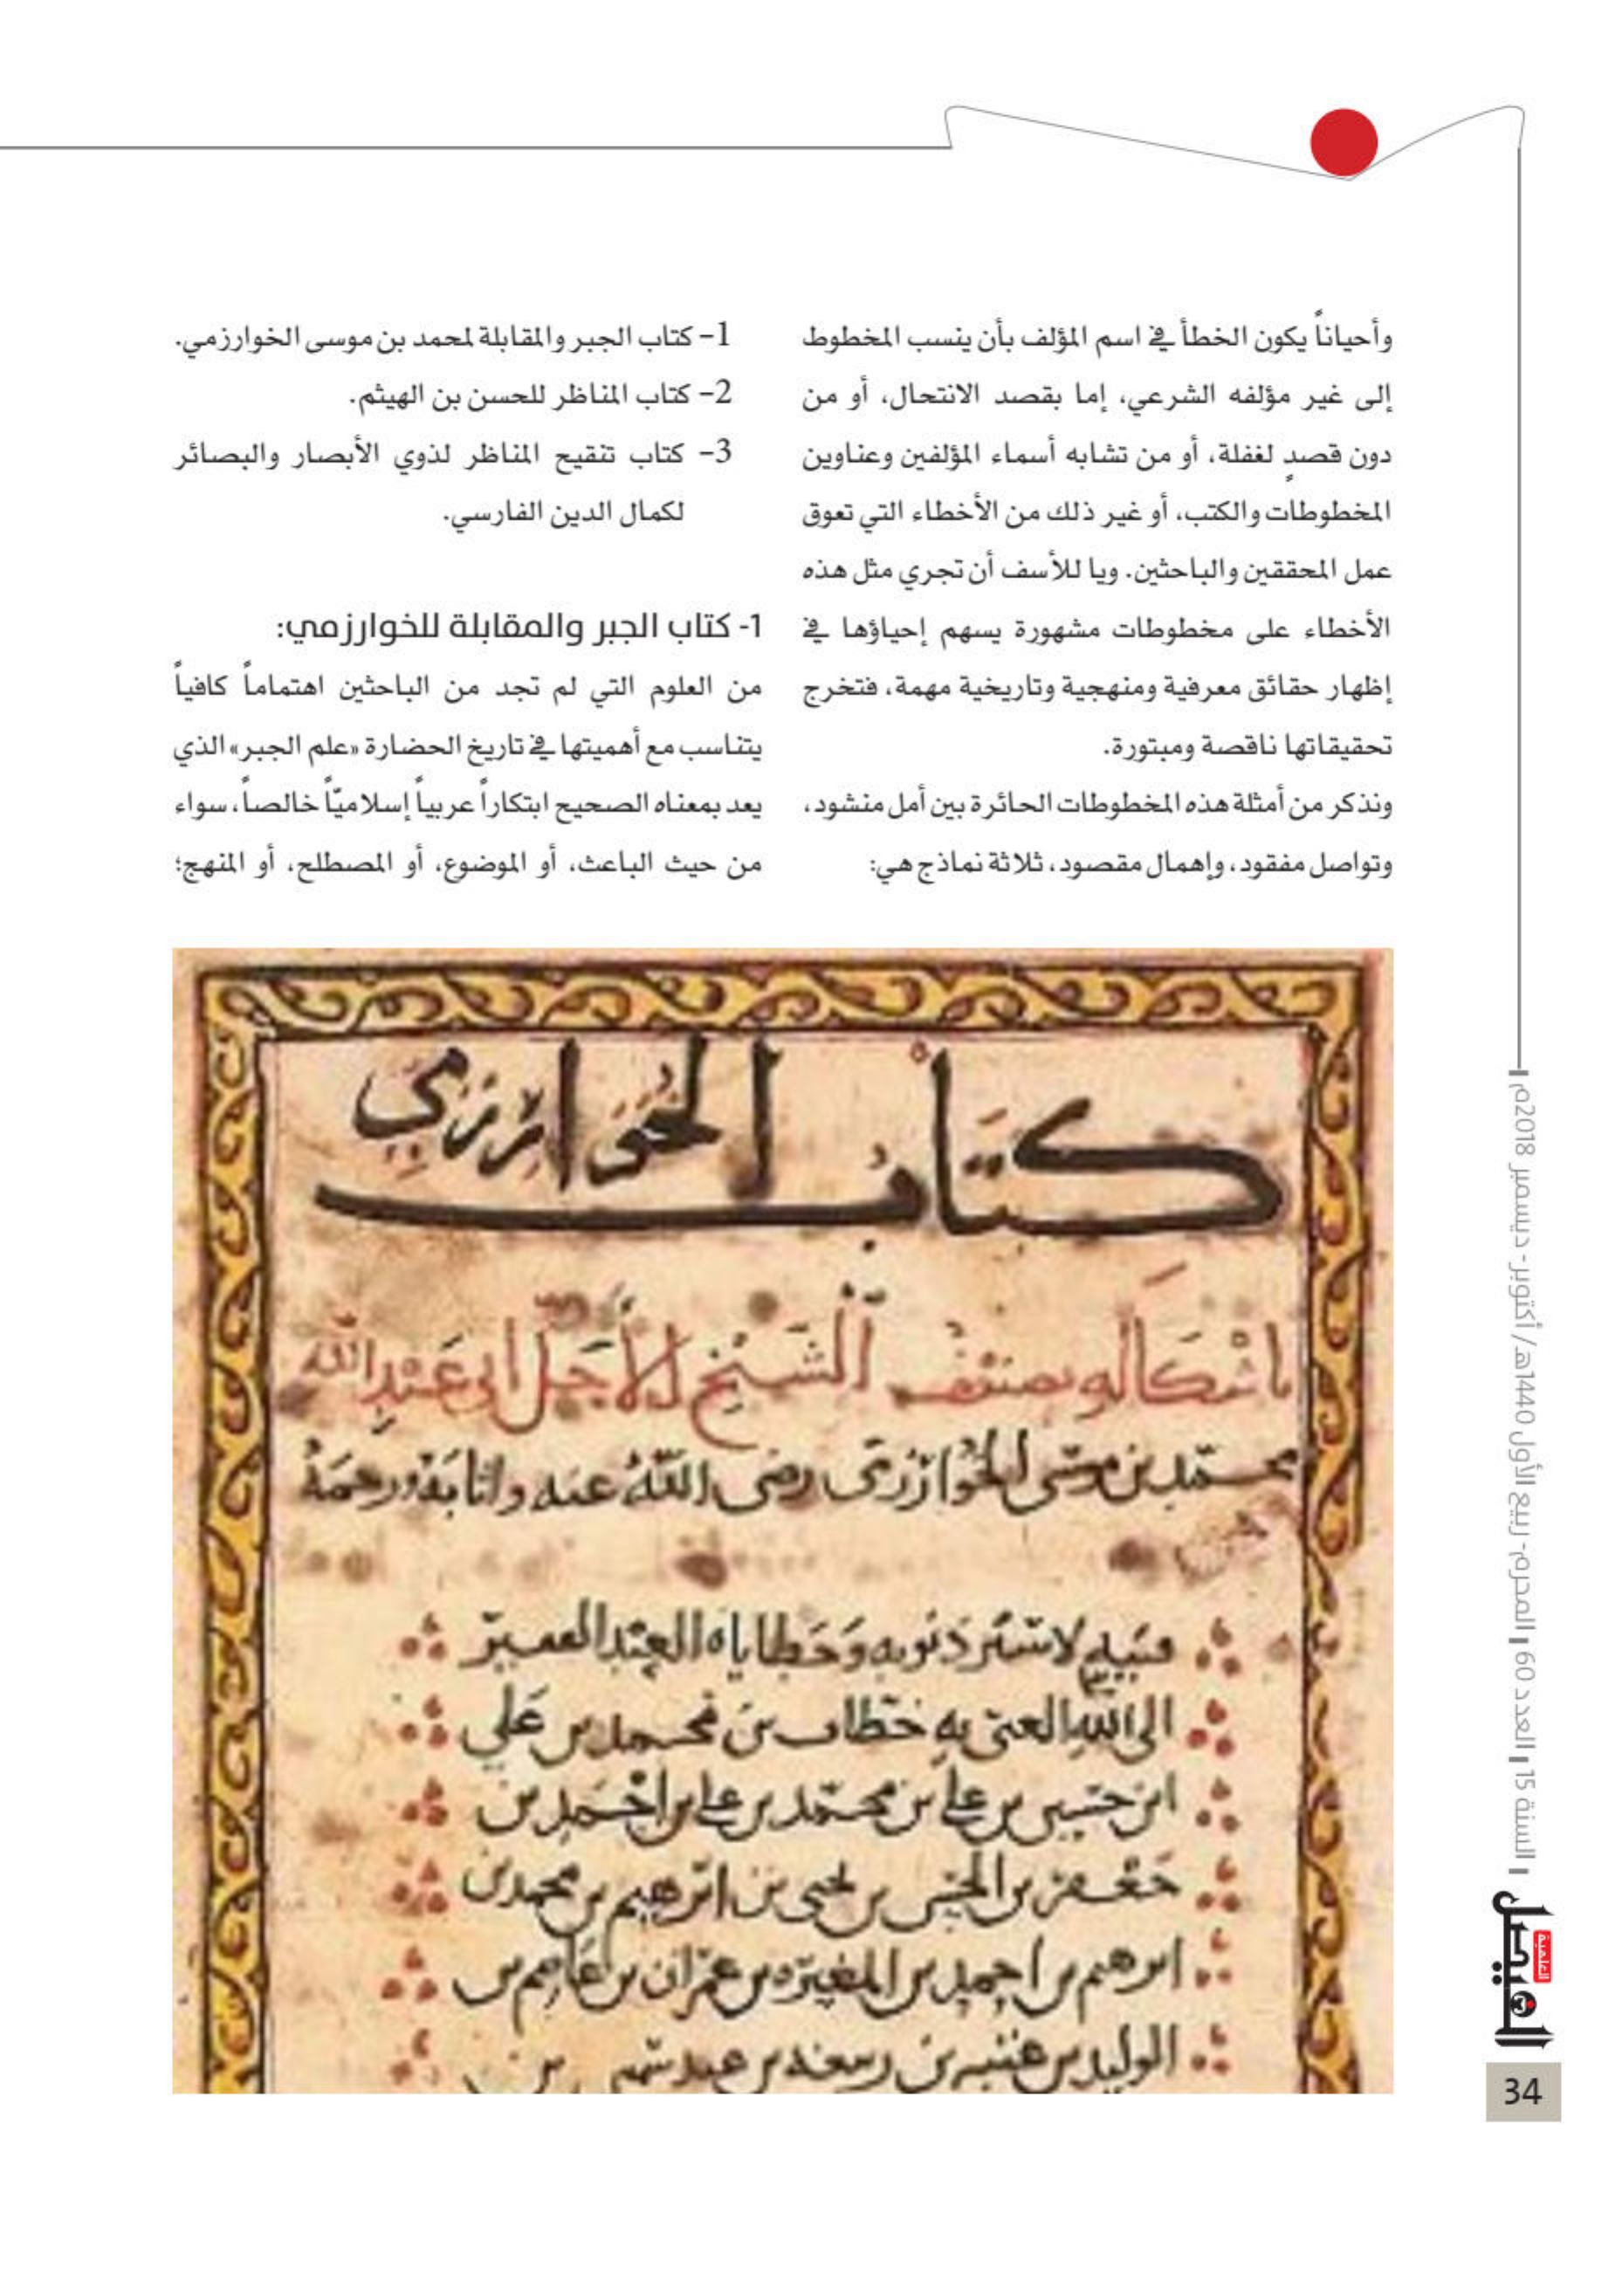 وأحياناً يكون الخطأ في اسم المؤلف بأن ينسب المخطوط
إلى غير مؤلفه الشرعي، إما بقصد الانتحال، أو من
دون قصدٍ لغفلة، أو من تشابه أسماء المؤلفين وعناوين
المخطوطات والكتب، أو غير ذلك من الأخطاء التي تعوق
عمل المحققين والباحثين. ويا للأسف أن تجري مثل هذه
الأخطاء على مخطوطات مشهورة يسهم إحياؤها في
إظهار حقائق معرفية ومنهجية وتاريخية مهمة، فتخرج
تحقيقاتها ناقصة ومبتورة.
ونذكر من أمثلة هذه المخطوطات الحائرة بين أمل منشود،
وتواصل مفقود، وإهمال مقصود، ثلاثة نماذج هي:
1- كتاب الجبر والمقابلة لمحمد بن موسى الخوارزمي.
2- كتاب المناظر للحسن بن الهيثم.
3- كتاب تنقيح المناظر لذوي الأبصار والبصائر
لكمال الدين الفارسي.
1- كتاب الجبر والمقابلة للخوارزمي:
من العلوم التي لم تجد من الباحثين اهتماماً كافياً
يتناسب مع أهميتها في تاريخ الحضارة «علم الجبر» الذي
يعد بمعناه الصحيح ابتكاراً عربياً إسلاميّاً خالصاً، سواء
من حيث الباعث، أو الموضوع، أو المصطلح، أو المنهج؛
كتاب الخوارزمي
باشكاله تصنيف الشيخ الأجل أبي عبد الله
محمد بن موسى الخوارزمي رضي الله عنه وأثابه رحمة
إلى الله الغني به خطاب بن محمد بن علي
ابن حسين بن علي بن محمد بن علي بن أحمد بن
إبراهيم بن أحمد بن المغيرة بن عمران بن عاصم بن
السنة 15 العدد 60 المحرم- ربيع الأول 1440هـ/ أكتوبر- ديسمبر 2018م
الفيصل
العلمية
34